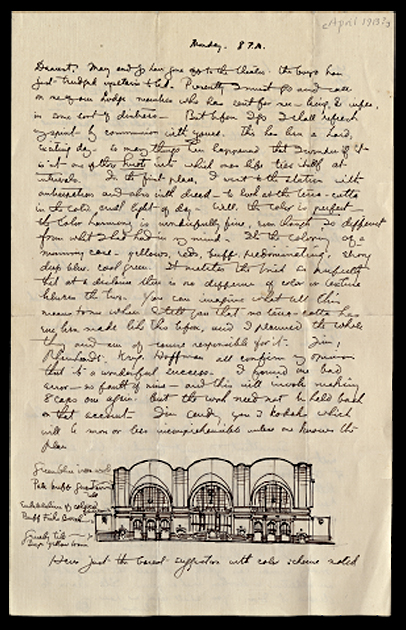 [April 1913?]
Monday. 8 P.M.
Dearest, May and J have gone off to the theatre. The boys have
just trudged upstairs to bed. Presently I must go and call
on new zoo lodge member who has sent for me
in some sort of distress. But before I go I shall refresh
my spirit by communion with yours. This has been a hard,
exciting day. So many things have happened that I wonder if it
isn't one of those knots into which ones life ties itself at
intervals. In the first place, I went to the station with
anticipation and also with dread — to look at the terra-cotta
in the cold cruel light of day. Well, the color is perfect —
the color harmony is wonderfully fine, even though so different
from what I had had in my mind. It's the coloring of a
mummy case — yellows, reds, buff, predominating, strong
deep blue, cool green. It matches the brick so perfectly
that at a distance there is no difference of color or texture
between the two. You can imagine what all this
means to me when I tell you that no terra-cotta has
ever been made like this before, and I planned the whole
thing and am of course responsible for it. Jim,
Hoffman all confirm my opinion
that it's a wonderful success. I found one bad
error — no fault of mine — and this will involve making
8 caps over again. But the work need not be held back
on that account. I'm sending you a kodak which
will be more or less incomprehensible unless one knows the
plan
Green blue iron work
Pale buff
of colored
Buff
yellow
Here's just the barest suggestion with color scheme noted